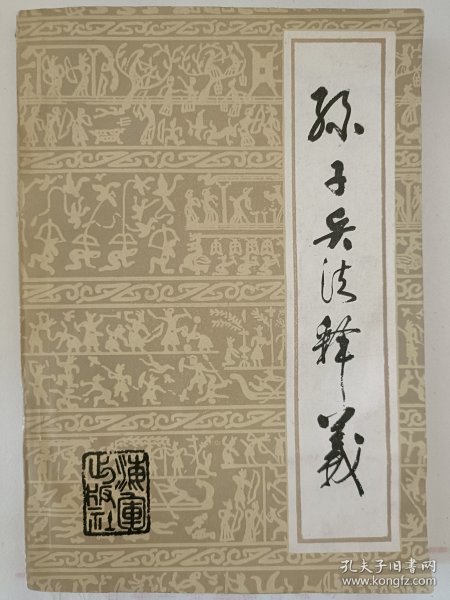 孫子兵法释義
海軍
出版社
孔夫子旧书网
www.kongfz.com